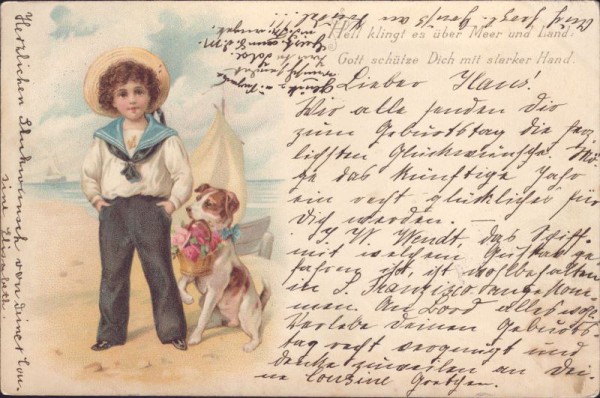 Hell klingt es über Meer und Land:
Gott schütze Dich mit starker Hand.
Lieber Hans!
Wir alle senden dir
zum Geburtstag die herz
lichsten Glückwünsche. Mö
ge das künftige Jahr
ein recht glückliches für
dich werden. —
J. W. Wendt, das Schiff
mit welchem Gustav ge
fahren ist, ist wohlbehalten
in S. Franzizio angekom
men. An Bord alles wohl.
Verlebe deinen Geburts
tag recht vergnügt und
denke zuweilen an dei
ne Cousine Gretchen.
Herzlichen Glückwunsch von deiner Cou
sine Elisabeth.